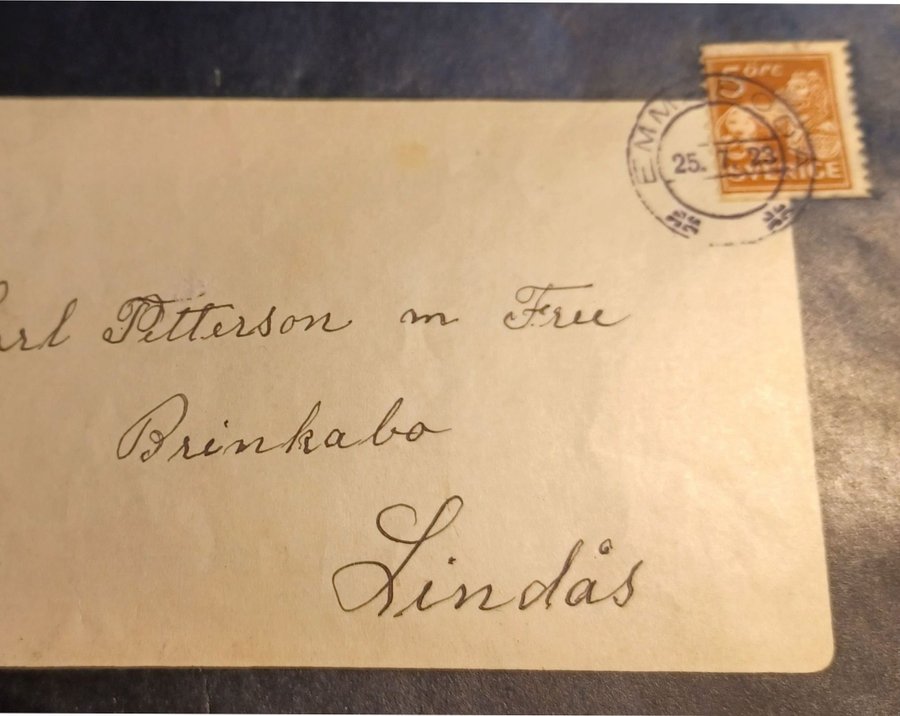 5 ÖRE
SVERIGE
EMMABODA
25. 7. 23
Carl Petterson m Fru
Brinkabo
Lindås